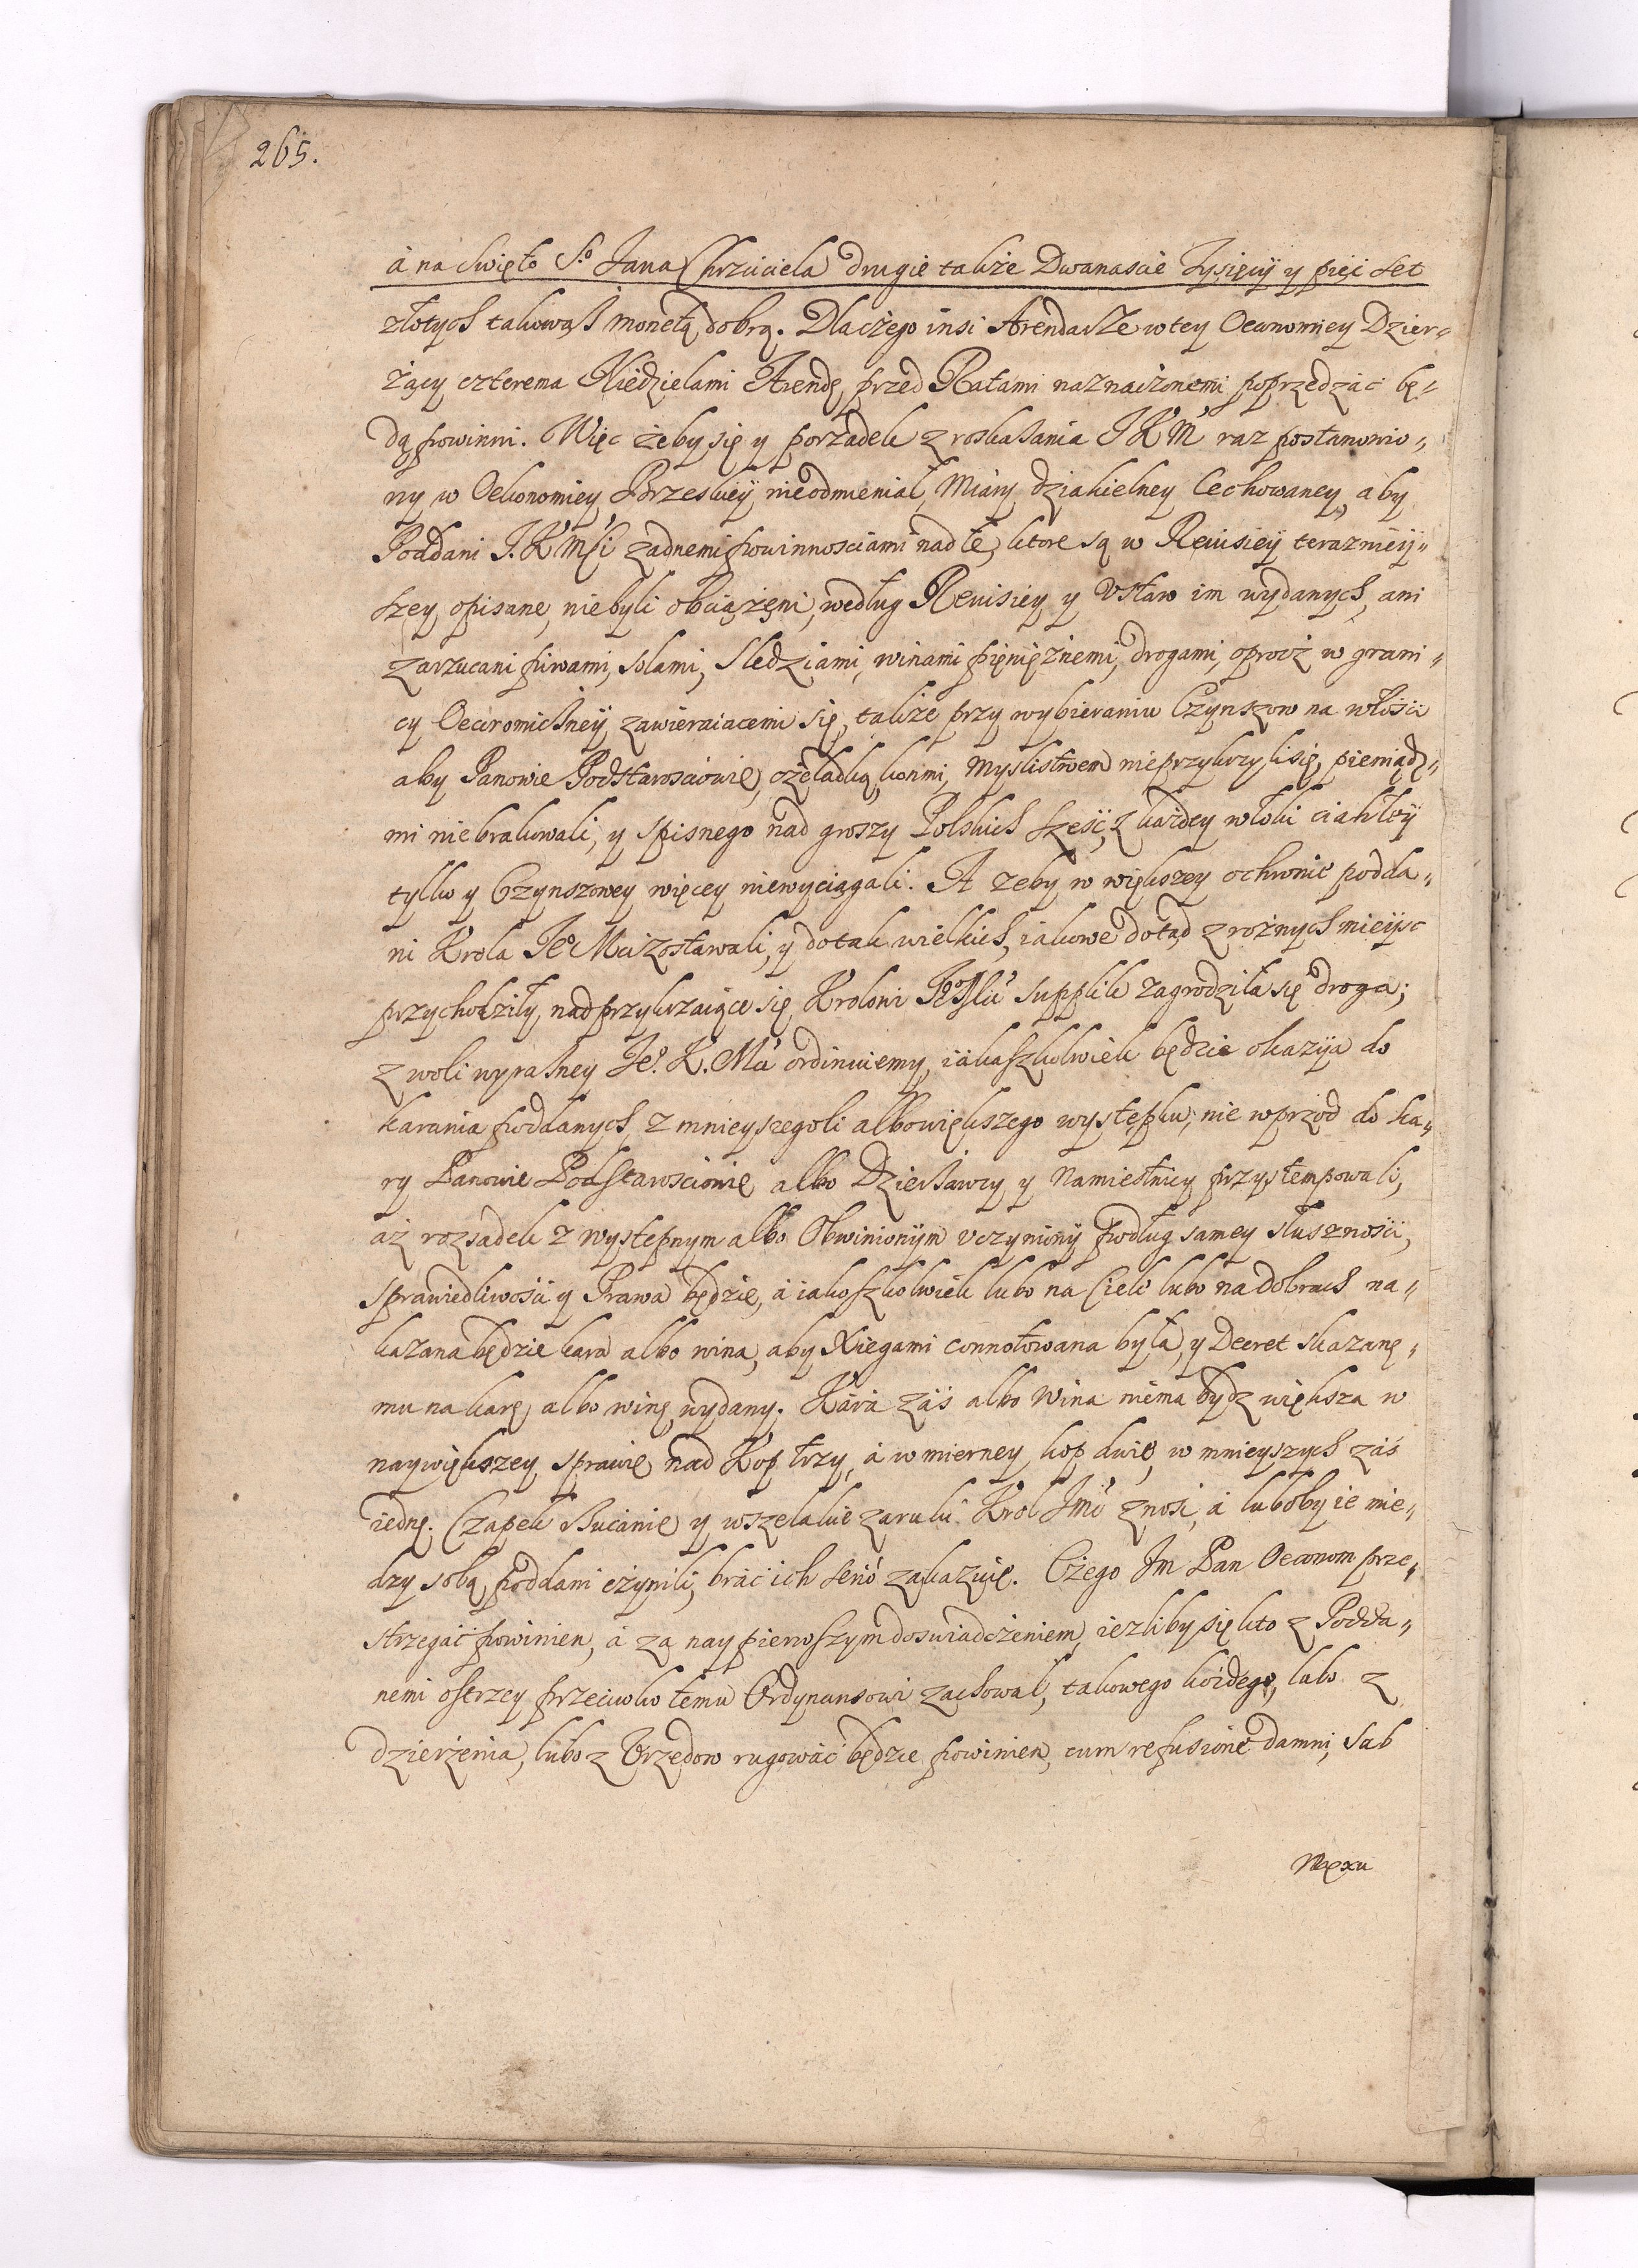 265.
à na Swięto S.º Jana Chrzciciela drugie także Dwanascie Tysięcy y pięć set
złotych takowąż monetą dobrą. Dlaczego insi Arendarze w tey Oeconomiey Dzier„
żący czterema Niedzielami Arendę przed Ratami naznaczonemi poprzedzac bę„
dą powinni. Więc żeby się y porządek z roskazania JKM raz postanowio„
ny w Oekonomiey Brzeskiey nieodmieniał Miary dziakielney Cechowaney, aby
Poddani J.K Mśći żadnemi powinnosciami nad te, ktore są w Reuisiey teraznieÿ„
szey opisane, nie byli obciążeni, według Reuisiey y Vstaw im wydanych, ani
zarzucani piwami, solami, Sledziami, winami pięniężnemi, drogami, oprocz w grani„
cy Oeconomiczney zawieraiacemi się, także przy wybieraniu Czynszow na włości
aby Panowie Podstarosciowie, czeladką, końmi, Myslistwem nieprzykrzyli się, pieniądz„
mi niebrakowali, y spisnego nad groszy Polskich sześć, z każdey włoki ciahłeÿ
tylko y Czynszowey więcey niewyciągali. A zeby w większey ochronie podda„
ni Krola Jeº Mci zostawali, y do tak wielkich, iakowe dotąd z rożnych mieÿsc
przychodziły, nad przykrzaiące się Krolowi JeºMci supplik zagrodziła się droga;
z woli wyrazney Jeº. K. Mci ordinuiemy, iakaszkolwiek będzie okazÿa do
karania poddanych, z mnieyszegoli albo większego występku, nie wprzod do ka„
ry Panowie Podstarosciowie albo Dzierżawcy y Namiestnicy przystempowali,
aż rozsadek z występnym albo Obwinionÿm vczyniony podług samey słusznosci,
sprawiedliwosci y Prawa będzie, à iakoszkolwiek lubo na Ciele lubo na dobrach na„
kazana będzie kara albo wina, aby Xiegami connotowana była, y Decret skazanę„
mu na karę, albo winę wydany. Kara zaś albo Wina niema bydz większa w
naywiększey sprawie nad Kop trzy, à w mierney kop dwie, w mnieyszych zaś
iednę. Czapek rzucanie y wszelakie zaruki Krol Jmć znosi, à luboby ie mie„
dzy sobą poddani czynili, brać ich serió zakazuię. Czego Jm Pan Oeconom prze„
strzegać powinien, à za naypierwszym doswiadczeniem, iezliby się kto z Podda„
nemi ostrzey przeciwko temu Ordynansowi zachował, takowego kożdego, lubo z
dzierżenia, lubo z Vrzędow rugować będzie powinien, cum refusione damni, sub
Nexu